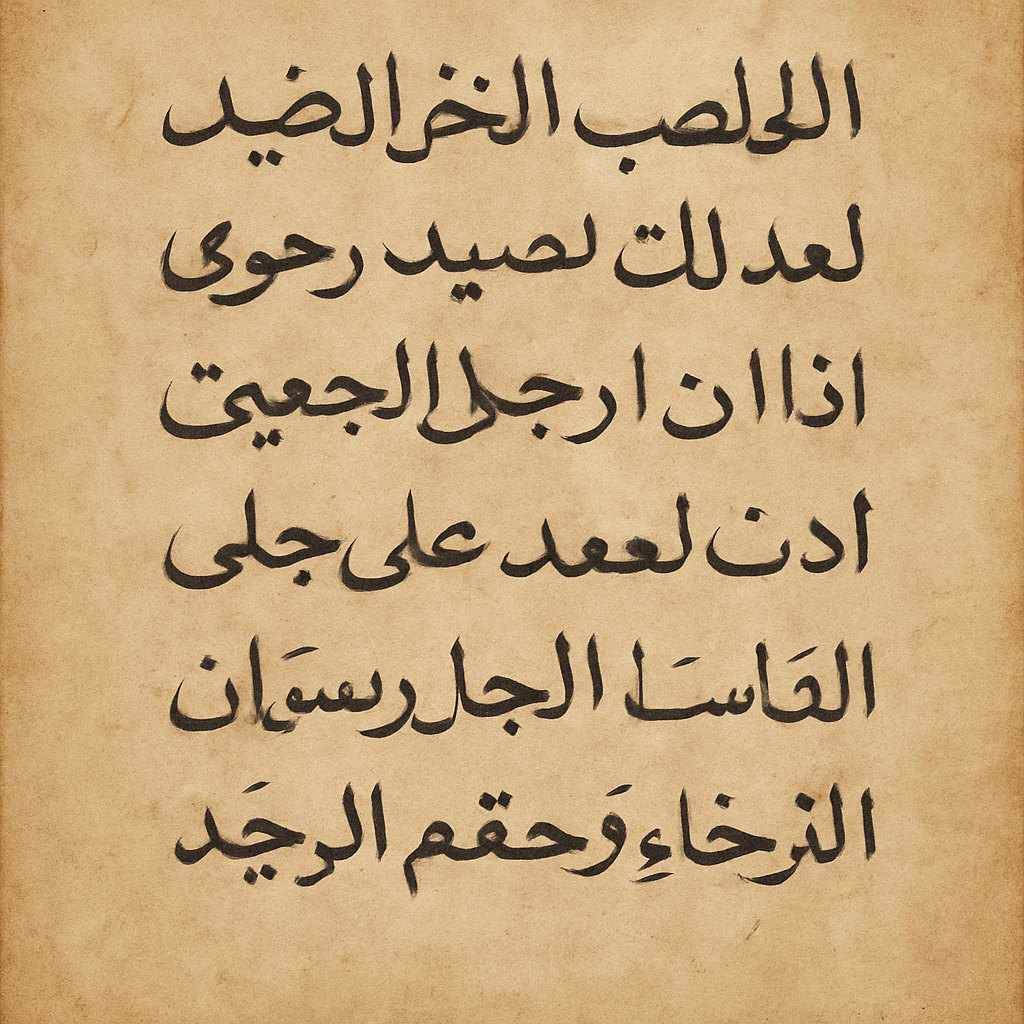 الخلصب الخر الضيد
لعد للت لصيد رحوى
اذا ان ارجل الجعيت
ادن لععد على جلى
القَاسَا الجل رسوَان
النرخاءِ وَحقم الرجَد